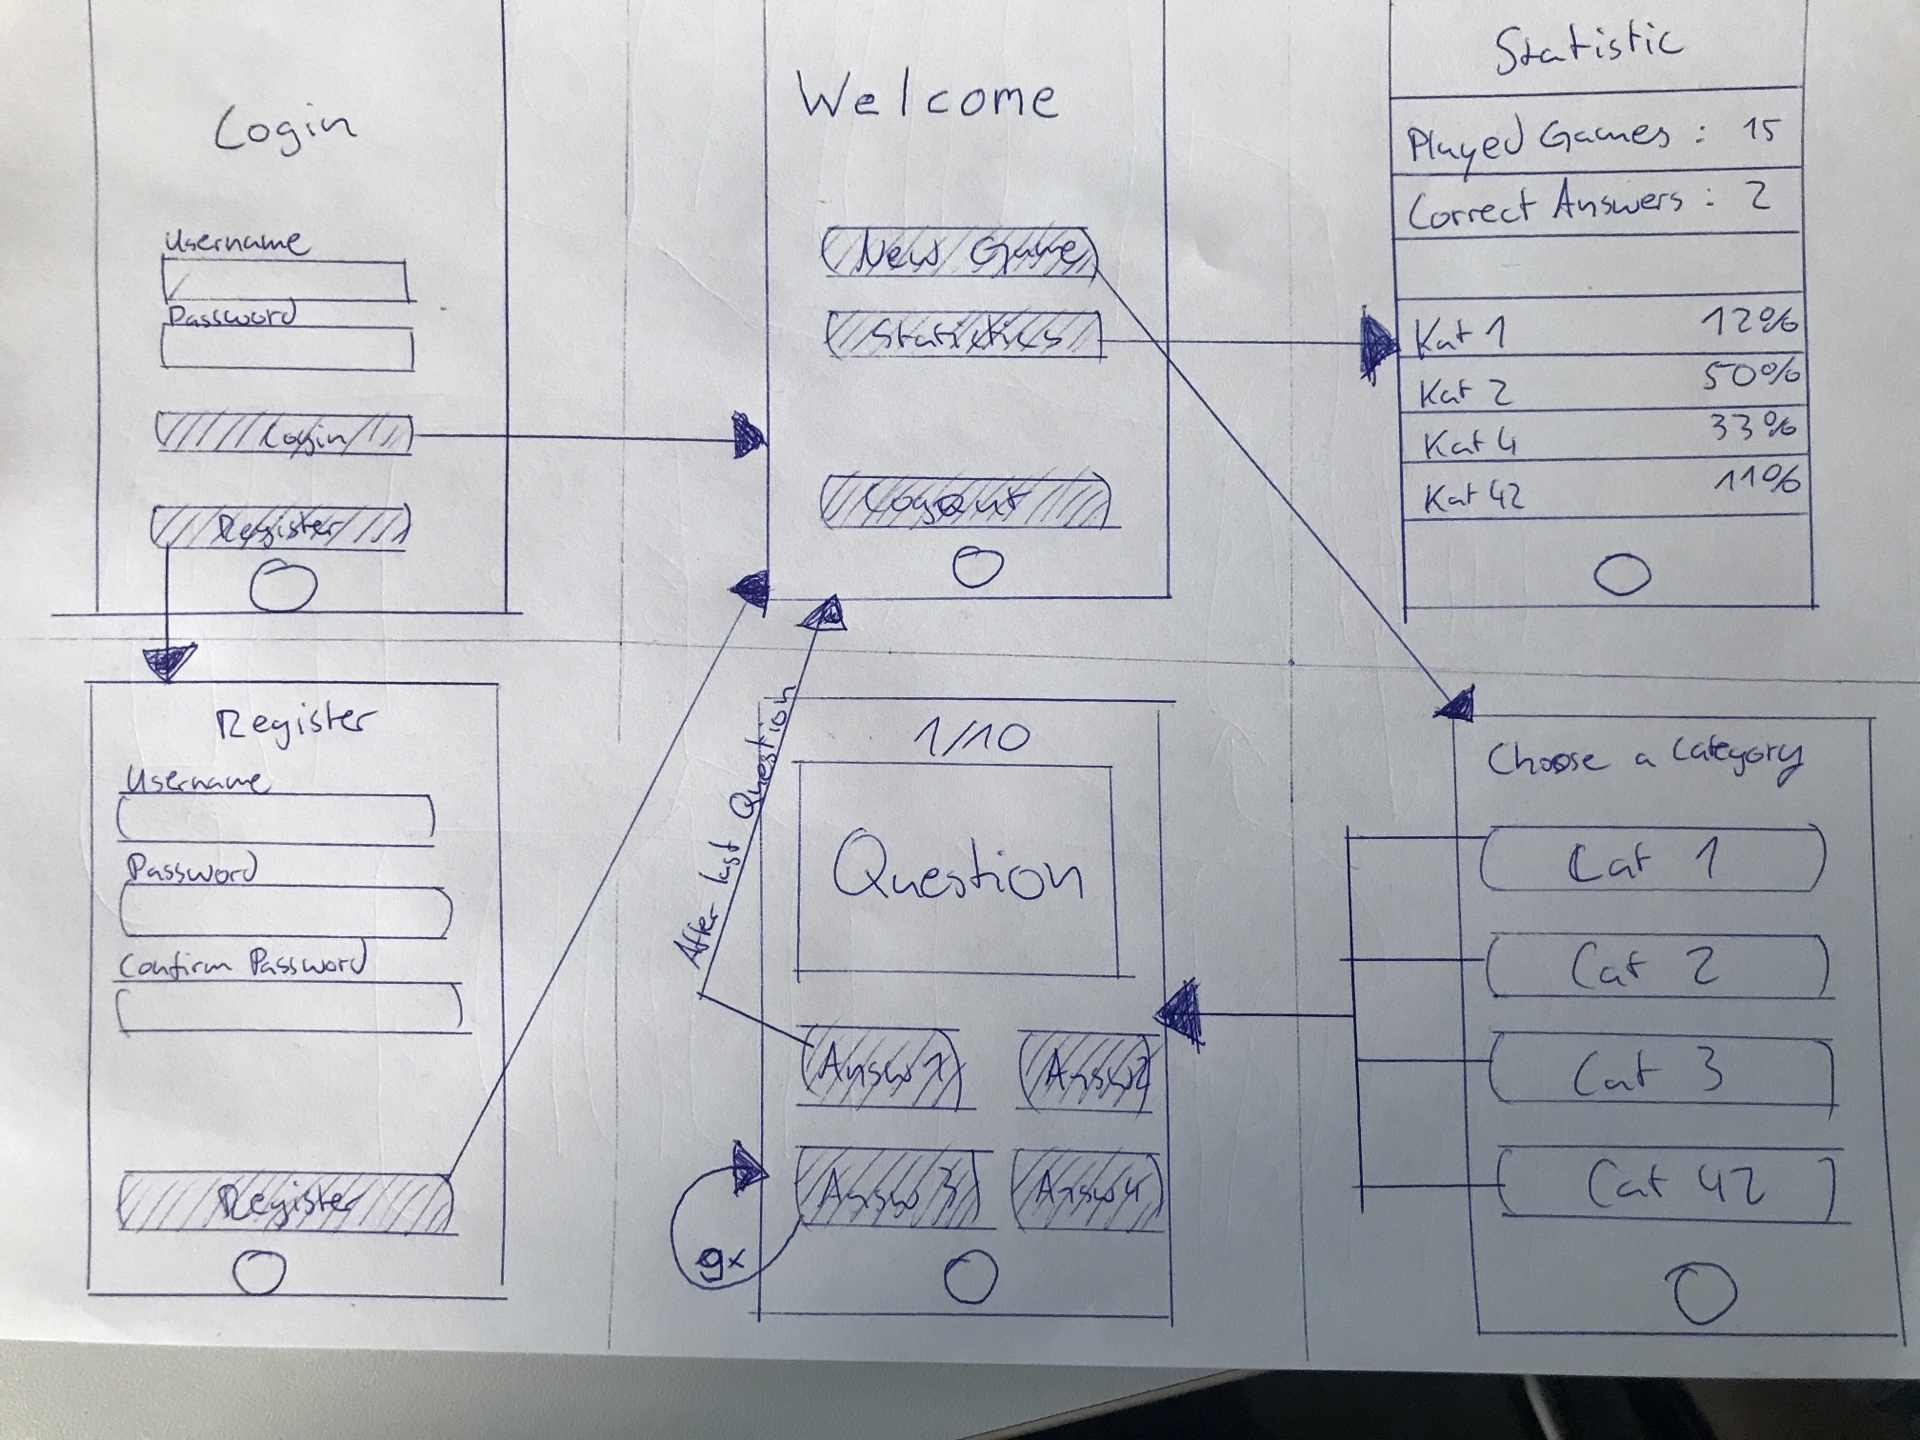 Login
Username
Password
Login
Register
Welcome
New Game
Statistics
Logout
Statistic
Played Games : 15
Correct Answers : 2
Kat 1 12%
Kat 2 50%
Kat 4 33%
Kat 42 11%
Register
Username
Password
Confirm Password
Register
After last Question
1/10
Question
Answ 1
Answ 2
Answ 3
Answ 4
9x
Choose a Category
Cat 1
Cat 2
Cat 3
Cat 42